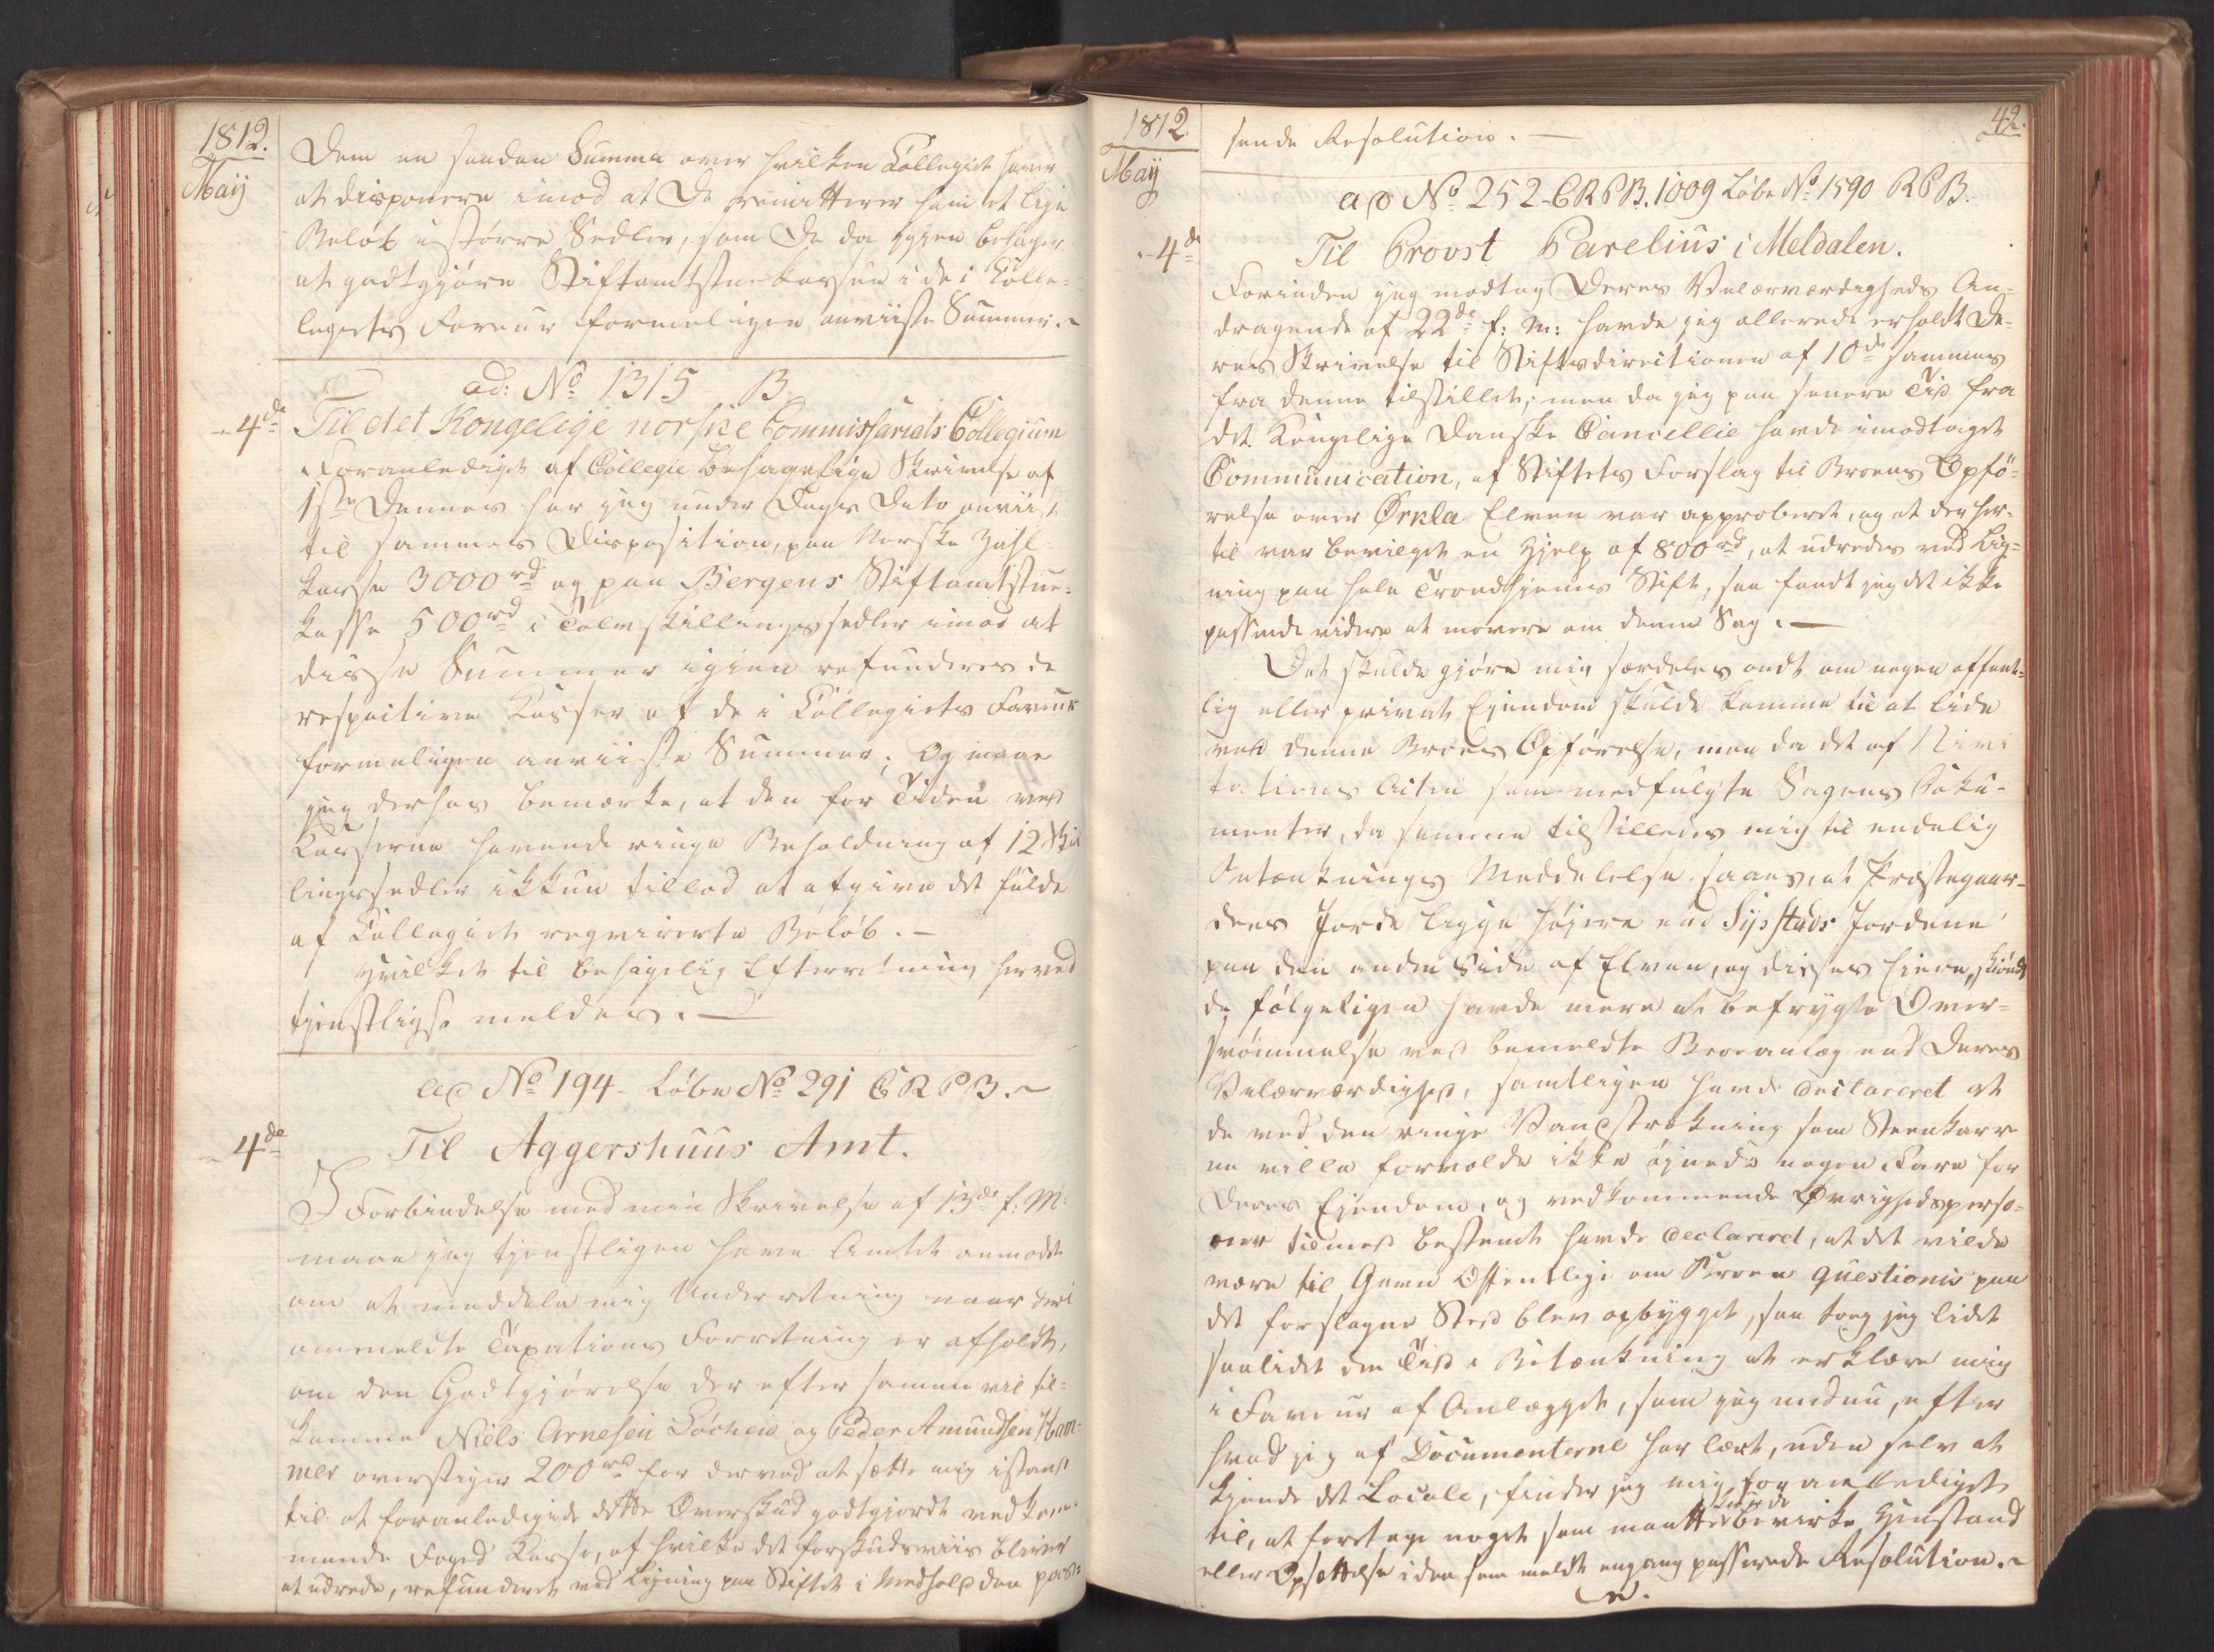 1812.
Maij
Dem en saadan Summa over hvilken Collegiet haver
at disponere imod at De remitterer ham et lige
Beløb i større Sedler, som De da igjen behager
at godtgjøre Stiftamtstuekassen i de i Colle-
legiets Faveur formeligen anviiste Summer.
ad: No 1315 B.
4de Til det Kongelige norske Commissariats Collegium
Foranlediget af Collegie behagelige Skrivelse af
1ste Dennes har jeg under Dags Dato anviist
til sammes Disposition, paa Norske Zahl-
kasse 3000rd og paa Bergens Stiftamtstue-
kasse 500rd i Tolvskillingssedler imod at
disse Summer igien refunderes de
respective Kasser af de i Collegiets Faveur
formeligen anviiste Summer; Og maae
jeg derhos bemærke, at den for Tiden ved
Kasserne havende ringe Beholdning af 12 Skil
lingssedler ikkun tillod at afgive det fulde
af Collegiet reqvirerte Beløb. -
Hvilket til behagelig Efterretning herved
tjenstligst meldes. -
ad No 194 - Løbe No 291 C R P B.
4de Til Aggershuus Amt.
I Forbindelse med min Skrivelse af 13de f: M:
maae jeg tjenstligen have Amtet anmodet
om at meddele mig Underretning naar den i
ommeldte Taxations Forretning er afholdt,
om den Godtgjørelse der efter samme vil til-
komme Niels Arnesen Løchen og Peder Amundsen Ham-
mer overstiger 200rd for derved at sætte mig istand
til at foranledigede dette Overskud godtgjordt vedkom-
mende Foged Kasse, af hvilke det forskudsviis bliver
at udrede, refunderet ved Ligning paa Stiftet i Medhold den pas-
1812.
Maij
42.
sende Resolution. -
ad No 252 - C R P B. 1009 Løbe No 1590 R P B.
4de Til Provst Parelius i Meldalen.
Forinden jeg modtog Deres Velærværdigheds An-
dragende af 22de f: M: havde jeg allerede erholdt De-
res Skrivelse til Stiftsdirectionen af 10de sammes
fra denne tilstillet; men da jeg paa senere Tid fra
det Kongelige Danske Cancellie havde imodtaget
Communication, af Stiftets Forslag til Broens Opfø-
relse over Ørkla Elven var approberet, og at der her-
til var bevilget en Hjelp af 800rd, at udredes ved Lig-
ning paa hele Trondhjems Stift, saa fandt jeg det ikke
passende videre at movere om denne Sag. -
Det skulde gjøre mig særdeles ondt om nogen offent-
lig eller privat Ejendom skulde komme til at lide
ved denne Broes Opførelse, men da det af
tations Acten som medfulgte Sagens Doku-
menter, da samme tilstilledes mig til endelig
Betænknings Meddelelse saaes, at Præstegaar-
dens Jorde ligge højere end Sysstads Jordene
paa den anden Side af Elven, og disses Eiere, skiøndt
de følgeligen havde mere at befrygte Over-
svømmelse ved bemeldte Broeanlæg end Deres
Velærværdighed, samtligen havde declareret at
de ved den ringe Vandstrækning som Steenkarre
ne ville forvolde ikke øjnede nogen Fare for
Deres Ejendom, og vedkommende Øvrighedsperso-
ner tilmed bestemt havde declareret, at det vilde
være til Gavn Offentlige om Broen questionis paa
det forslagne Sted blev opbygget, saa tog jeg lidt
saalidet den Tid i Betænkning at erklære mig
i Faveur af Anlægget, som jeg endnu, efter
hvad jeg af Documenterne har lært, uden selv at
kjende det Locale, finder jeg mig foranlediget
til, at foretage noget som maatte kunde bevirke Henstand
eller Opsættelse i den som meldt engang passerede Resolution.